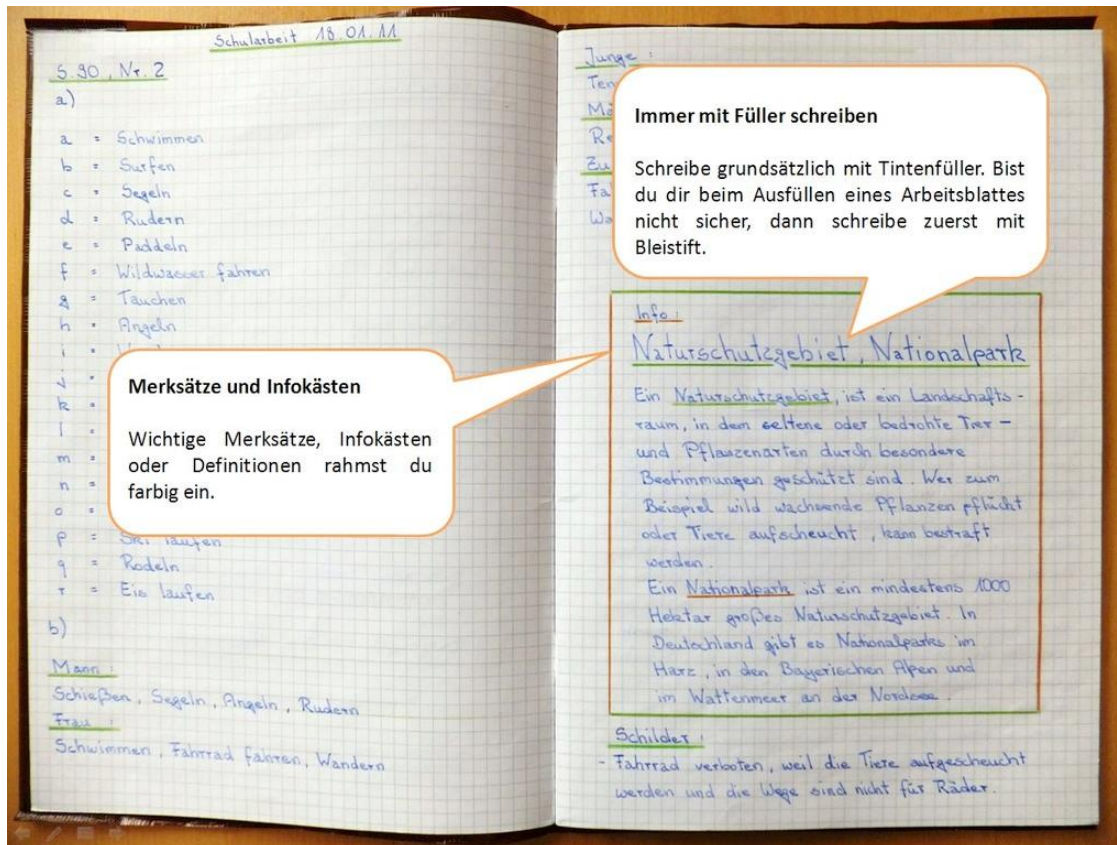 Schularbeit 18.01.11
S.90, Nr. 2
a)
a = Schwimmen
b = Surfen
c = Segeln
d = Rudern
e = Paddeln
f = Wildwasser fahren
g = Tauchen
h = Angeln
i =
j =
k =
l =
m =
n =
o =
p = Ski laufen
q = Rodeln
r = Eis laufen
b)
Mann :
Schießen, Segeln, Angeln, Rudern
Frau :
Schwimmen, Fahrrad fahren, Wandern
Merksätze und Infokästen
Wichtige Merksätze, Infokästen
oder Definitionen rahmst du
farbig ein.
Junge :
Immer mit Füller schreiben
Schreibe grundsätzlich mit Tintenfüller. Bist
du dir beim Ausfüllen eines Arbeitsblattes
nicht sicher, dann schreibe zuerst mit
Bleistift.
Info:
Naturschutzgebiet, Nationalpark
Ein Naturschutzgebiet, ist ein Landschafts-
raum, in dem seltene oder bedrohte Tier-
und Pflanzenarten durch besondere
Bestimmungen geschützt sind. Wer zum
Beispiel wild wachsende Pflanzen pflückt
oder Tiere aufscheucht, kann bestraft
werden.
Ein Nationalpark ist ein mindestens 1000
Hektar großes Naturschutzgebiet. In
Deutschland gibt es Nationalparks im
Harz, in den Bayerischen Alpen und
im Wattenmeer an der Nordsee.
Schilder:
- Fahrrad verboten, weil die Tiere aufgescheucht
werden und die Wege sind nicht für Räder.